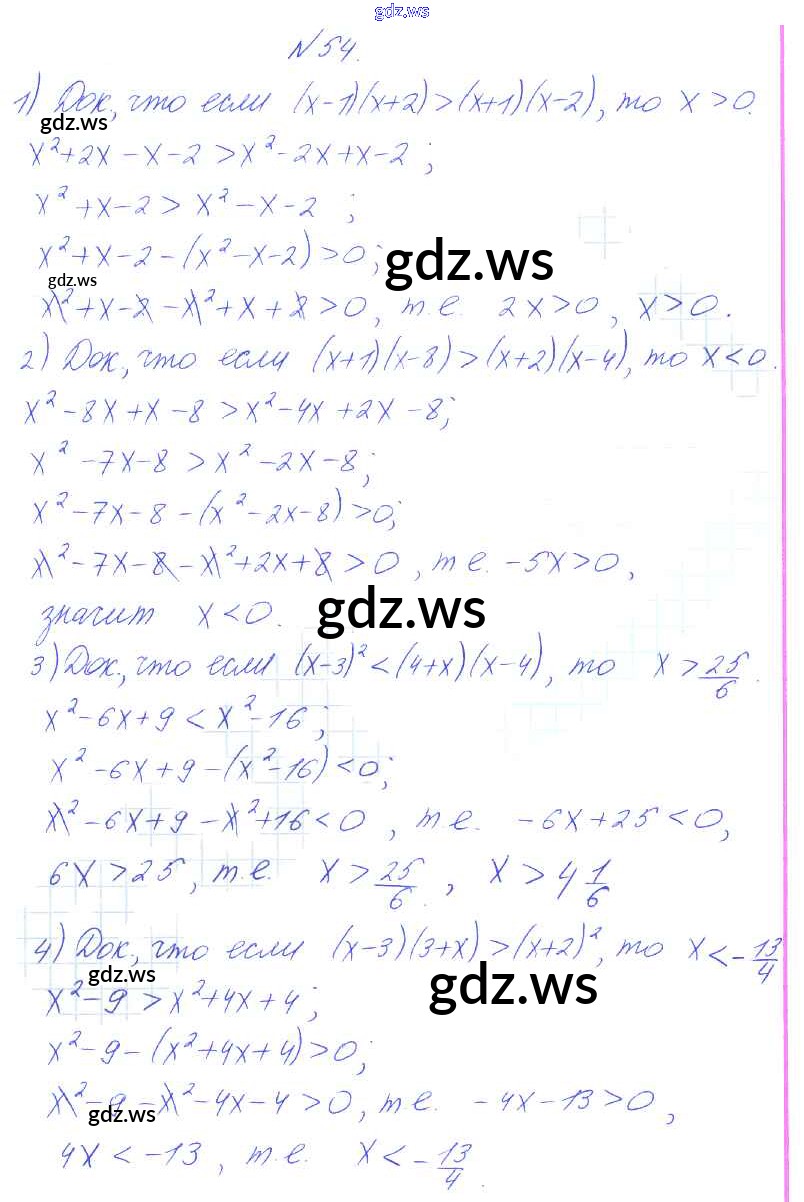 gdz.ws
N 54.
1) Док, что если (x-1)(x+2)>(x+1)(x-2), то x>0.
gdz.ws
x²+2x-x-2>x²-2x+x-2;
x²+x-2>x²-x-2;
x²+x-2-(x²-x-2)>0;
gdz.ws
gdz.ws
x²+x-2-x²+x+2>0, т.е. 2x>0, x>0.
2) Док, что если (x+1)(x-8)>(x+2)(x-4), то x<0.
x²-8x+x-8>x²-4x+2x-8;
x²-7x-8>x²-2x-8;
x²-7x-8-(x²-2x-8)>0;
x²-7x-8-x²+2x+8>0, т.е. -5x>0,
значит x<0.
gdz.ws
3) Док, что если (x-3)²<(4+x)(x-4), то x>25/6.
x²-6x+9<x²-16;
x²-6x+9-(x²-16)<0;
x²-6x+9-x²+16<0, т.е. -6x+25<0,
6x>25, т.е. x>25/6, x>4 1/6
4) Док, что если (x-3)(3+x)>(x+2)², то x<-13/4
gdz.ws
gdz.ws
x²-9>x²+4x+4;
x²-9-(x²+4x+4)>0;
x²-9-x²-4x-4>0, т.е. -4x-13>0,
gdz.ws
4x<-13, т.е. x<-13/4.